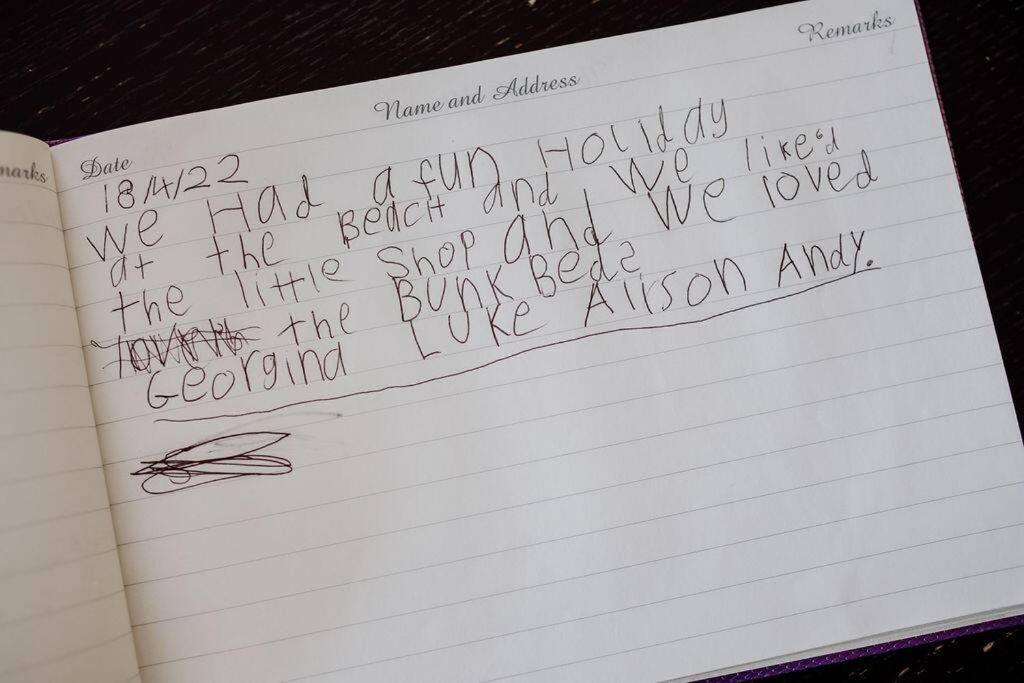 Remarks
Name and Address
marks
Date
18/4/22
We Had a fun Holidday
at the Beach and We like'd
the little Shop and We loved
the Bunk Beds
Georgina Luke Alison Andy.